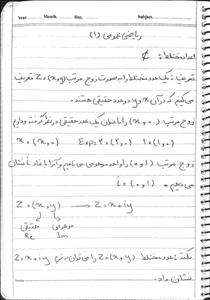 Year. Month. Day. Subject.
ریاضی عمومی (1)
اعداد مختلط: ₵
تعریف: یک عدد مختلط به صورت زوج مرتب Z=(x,y) تعریف
می‌کنیم که در آن x و y دو عدد حقیقی هستند.
زوج مرتب (x,0) را با همان یک عدد حقیقی x در نظر گرفته و داریم
x=(x,0) Exp: 2=(2,0) 1=(1,0)
زوج مرتب (0,1) را واحد موهومی می‌نامیم و آن را با نماد i نشان
می‌دهیم. i=(0,1)
Z=(x,y) → Z=x+iy
حقیقی موهومی
Re Im
نکته: عدد مختلط Z=(x,y) را می‌توان به فرم Z=x+iy
نشان داد.